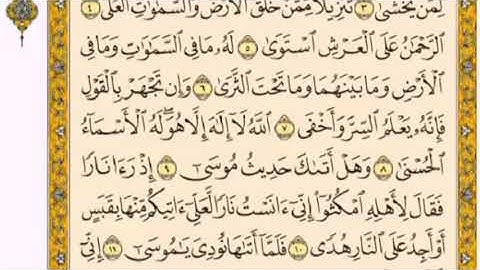 لِّمَن يَخْشَىٰ ٣ تَنزِيلًا مِّمَّنْ خَلَقَ الْأَرْضَ وَالسَّمَٰوَٰتِ الْعُلَى ٤
الرَّحْمَٰنُ عَلَى الْعَرْشِ اسْتَوَىٰ ٥ لَهُ مَا فِي السَّمَٰوَٰتِ وَمَا فِي
الْأَرْضِ وَمَا بَيْنَهُمَا وَمَا تَحْتَ الثَّرَىٰ ٦ وَإِن تَجْهَرْ بِالْقَوْلِ
فَإِنَّهُ يَعْلَمُ السِّرَّ وَأَخْفَى ٧ اللَّهُ لَا إِلَٰهَ إِلَّا هُوَ لَهُ الْأَسْمَاءُ
الْحُسْنَىٰ ٨ وَهَلْ أَتَىٰكَ حَدِيثُ مُوسَىٰ ٩ إِذْ رَءَا نَارًا
فَقَالَ لِأَهْلِهِ امْكُثُوا إِنِّي ءَانَسْتُ نَارًا لَّعَلِّي ءَاتِيكُم مِّنْهَا بِقَبَسٍ
أَوْ أَجِدُ عَلَى النَّارِ هُدًى ١٠ فَلَمَّا أَتَىٰهَا نُودِيَ يَٰمُوسَىٰ ١١ إِنِّي